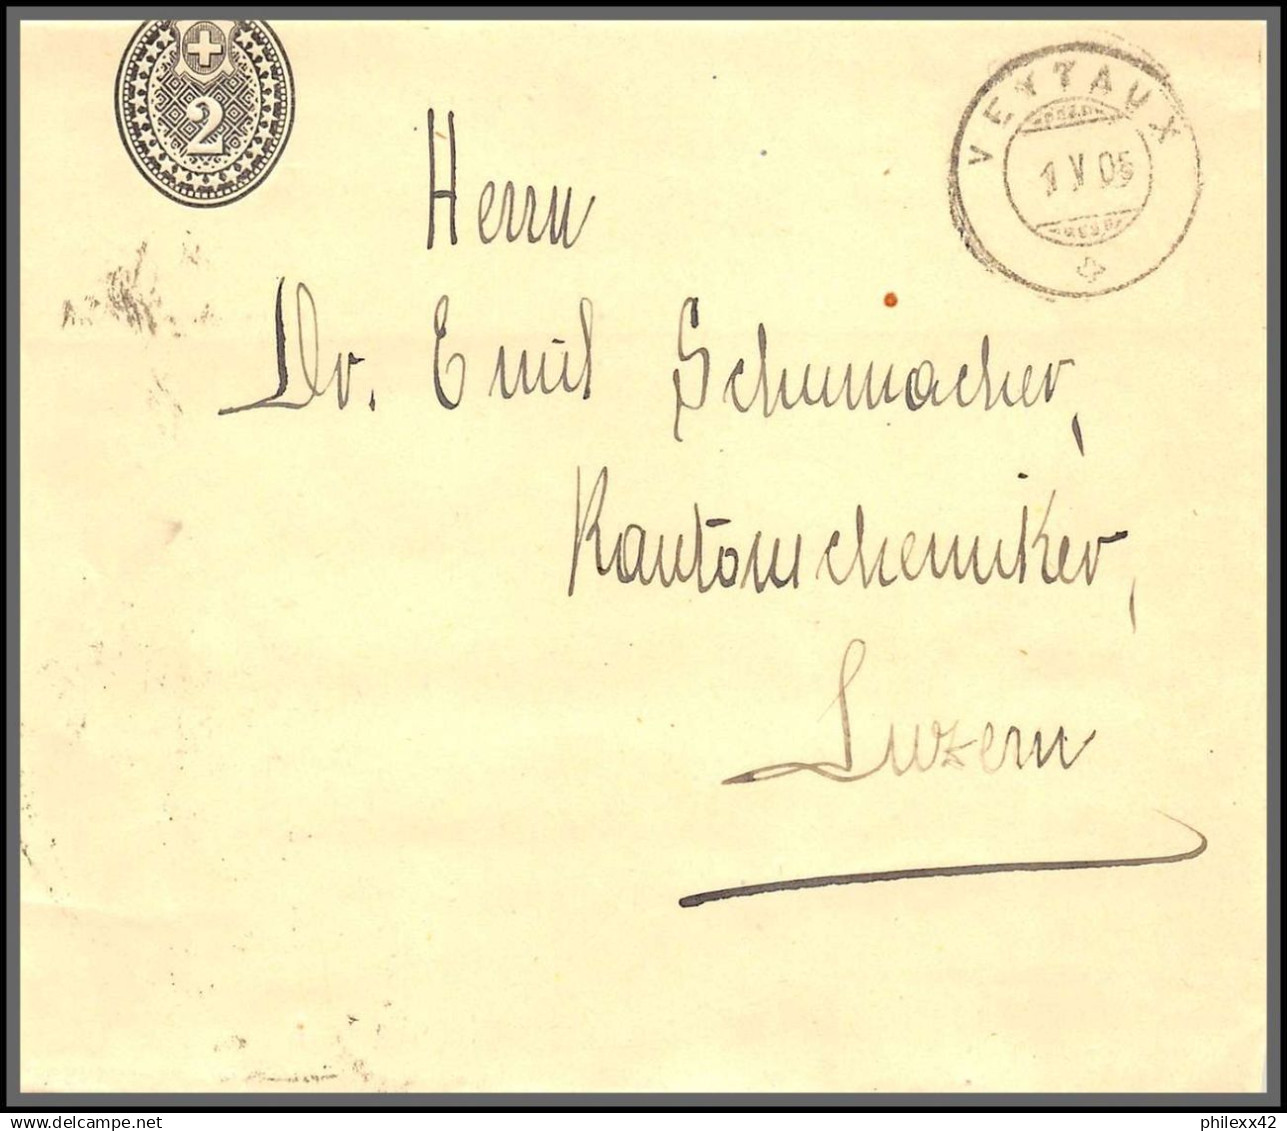 2
VEYTAUX
1 V 05
Herrn
Dr. Emil Schumacher,
Kantonschemiker,
Luzern
philexx42